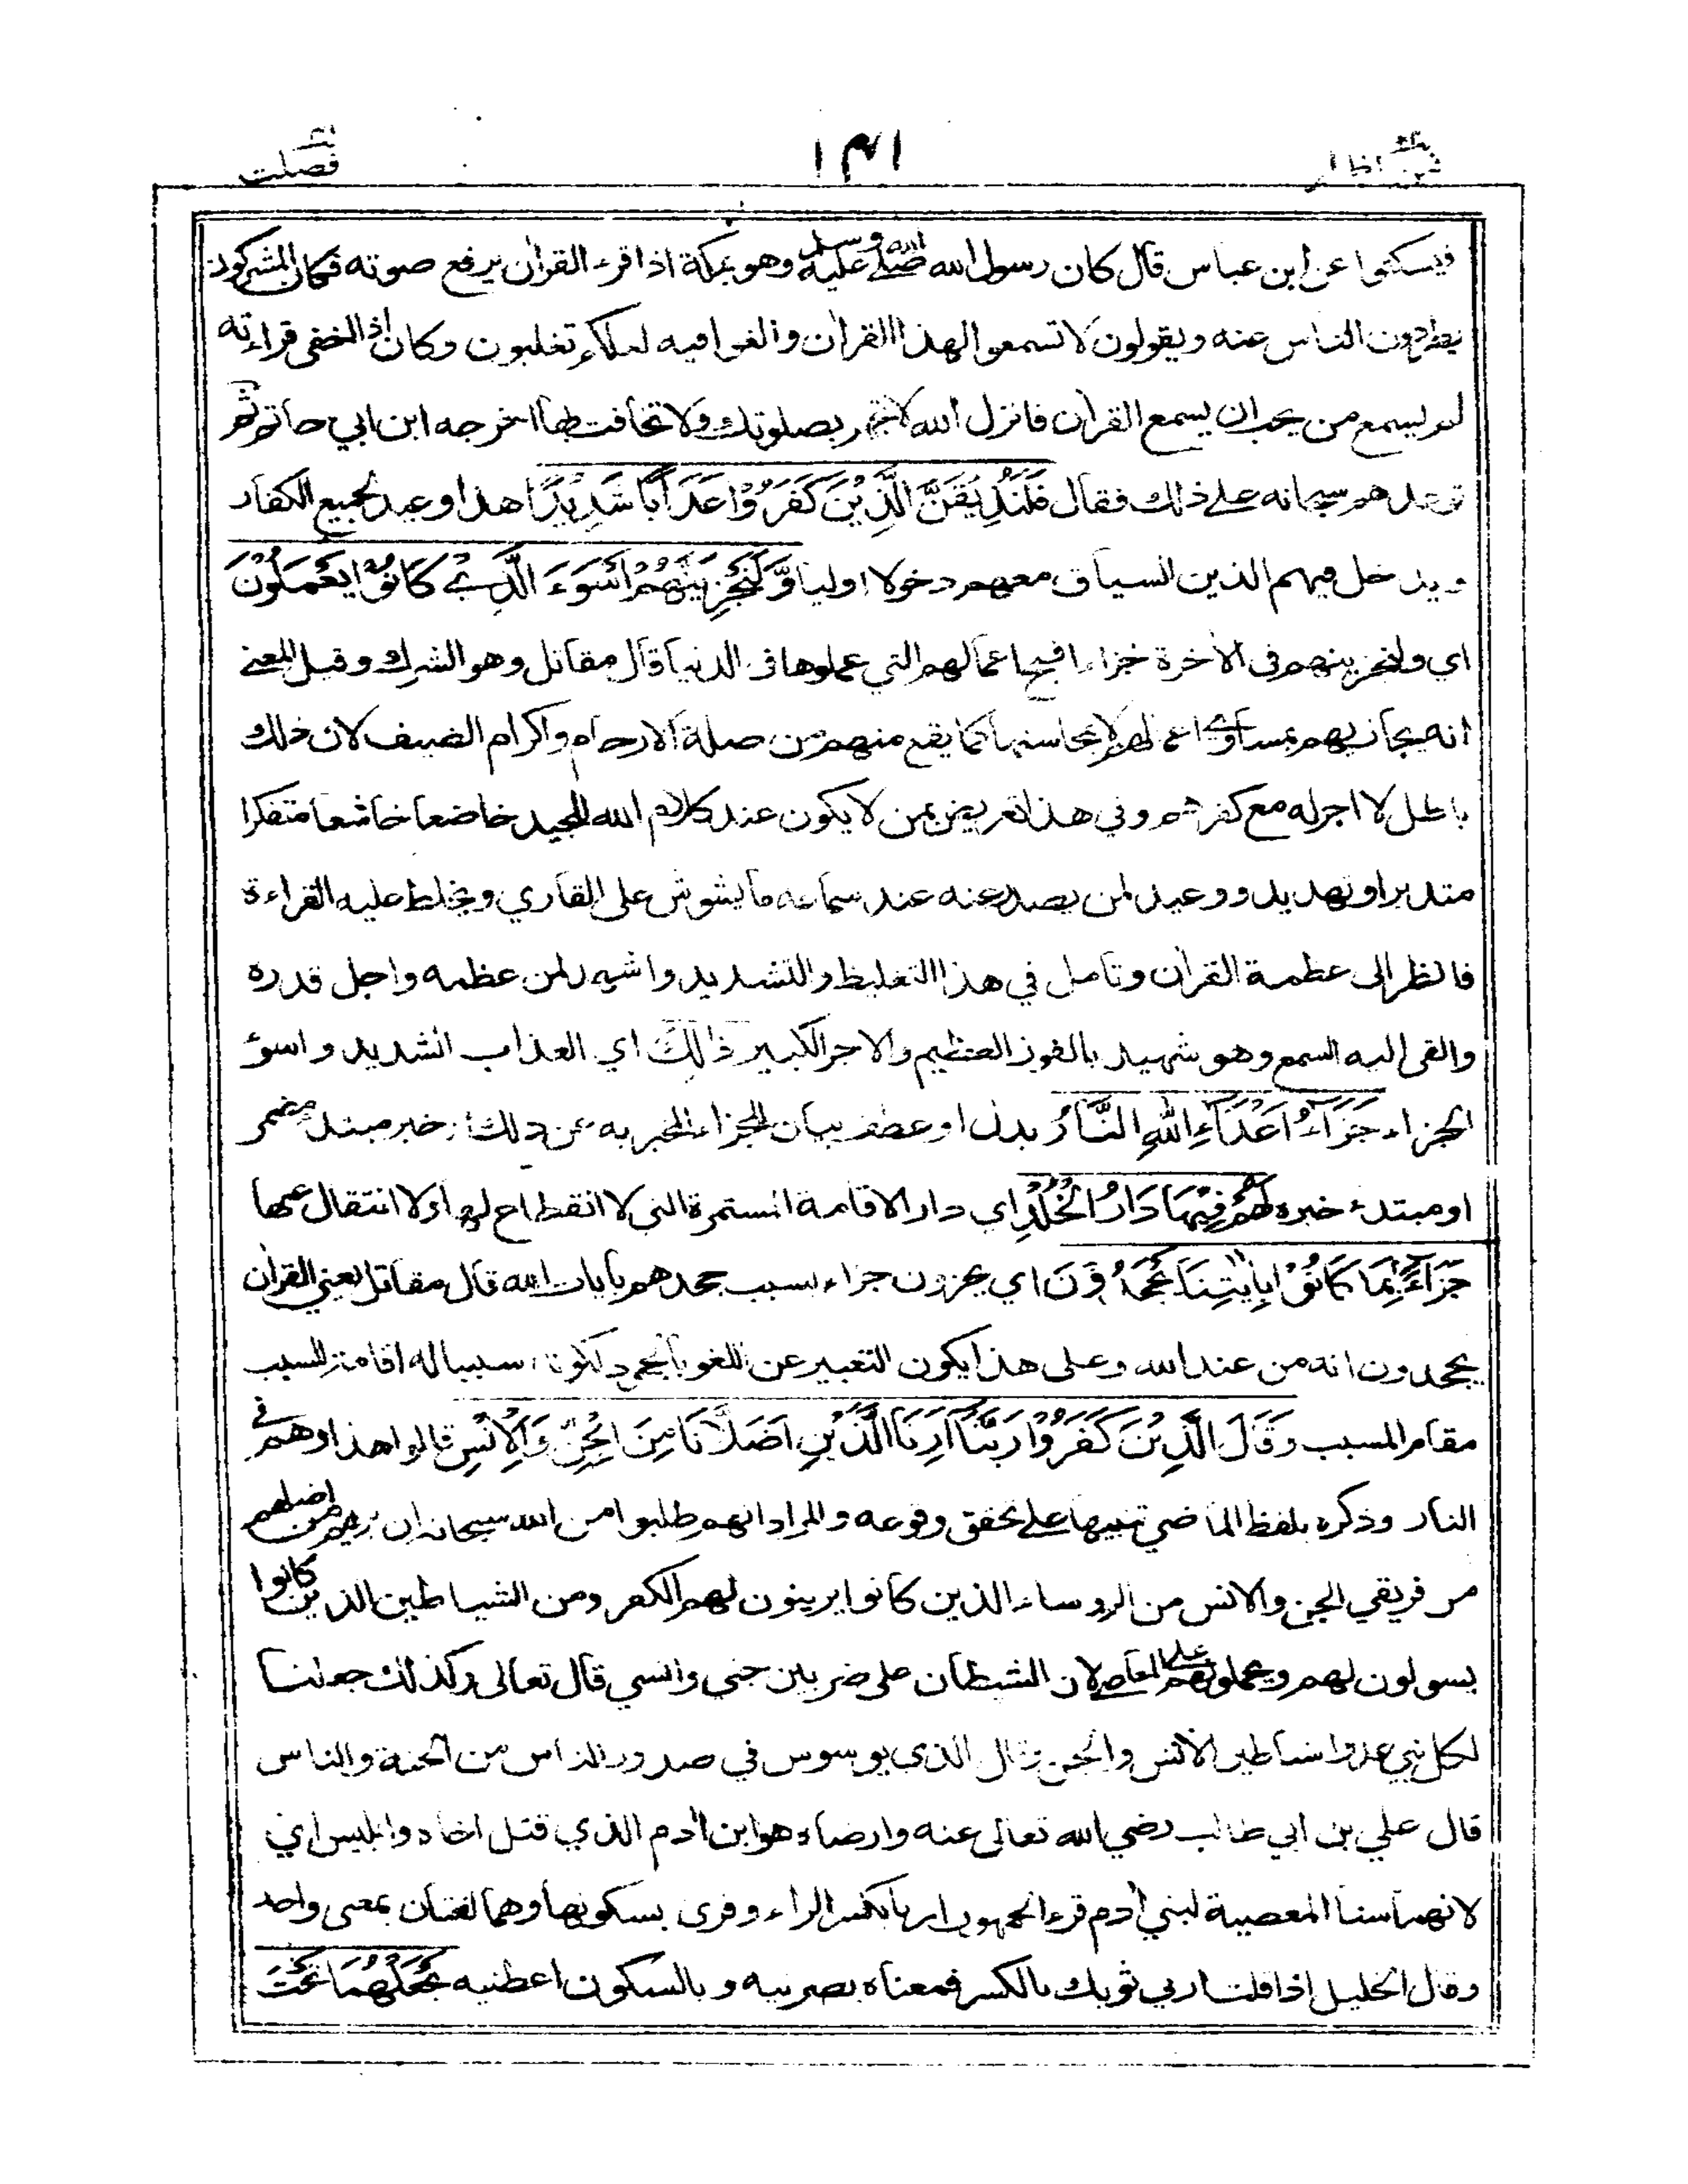 فصلت
١٣١
فمن اظلم
فيسكتوا عن ابن عباس قال كان رسول الله صلى الله عليه وسلم وهو بمكة اذا قرء القرآن يرفع صوته فكان المشركون
يطردون الناس عنه ويقولون لا تسمعوا لهذا القرآن والغوا فيه لعلكم تغلبون وكان اذا اخفى قراءته
لم يسمع من يحب ان يسمع القرآن فانزل الله لا تجهر بصلوتك ولا تخافت بها اخرجه ابن ابي حاتم ثم
توعدهم سبحانه على ذلك فقال فَلَنُذِيْقَنَّ الَّذِيْنَ كَفَرُوْا عَذَابًا شَدِيْدًا هذا وعيد لجميع الكفار
ويدخل فيهم الذين السياق معهم دخولا اوليا وَّلَنَجْزِيَنَّهُمْ اَسْوَءَ الَّذِيْ كَانُوْا يَعْمَلُوْنَ
اي ولنجزينهم في الآخرة جزاء اقبح اعمالهم التي عملوها في الدنيا قال مقاتل وهو الشرك وقيل المعنى
انه يجازيهم بمساوي اعمالهم لا بمحاسنها كما يقع منهم من صلة الارحام واكرام الضيف لان ذلك
باطل لا اجر له مع كفرهم وفي هذا تعريض بمن لا يكون عند كلام الله المجيد خاضعا خاشعا متفكرا
متدبرا وتهديد ووعيد لمن يصدر عنه عند سماعه ما يشوش على القاري ويخلط عليه القراءة
فانظر الى عظمة القرآن وتامل في هذا التغليظ والتشديد واشهد لمن عظمه واجل قدره
والقى اليه السمع وهو شهيد بالفوز العظيم والاجر الكبير ذٰلِكَ اي العذاب الشديد واسوء
الجزاء جَزَآءُ اَعْدَآءِ اللهِ النَّارُ بدل او عطف بيان للجزاء المخبر به عن ذلك او خبر مبتدء مضمر
او مبتدء خبره لَهُمْ فِيْهَا دَارُ الْخُلْدِ اي دار الاقامة المستمرة التي لا انقطاع لها ولا انتقال عنها
جَزَآءًۢ بِمَا كَانُوْا بِاٰيٰتِنَا يَجْحَدُوْنَ اي يجزون جزاء بسبب جحدهم بآيات الله قال مقاتل يعني القرآن
يجحدون انه من عند الله وعلى هذا يكون التعبير عن اللغو بالجحود لكونه سببا له اقامة للسبب
مقام المسبب وَقَالَ الَّذِيْنَ كَفَرُوْا رَبَّنَآ اَرِنَا الَّذَيْنِ اَضَلَّانَا مِنَ الْجِنِّ وَالْاِنْسِ قالوا هذا وهم في
النار وذكره بلفظ الماضي تنبيها على تحقق وقوعه والمراد انهم طلبوا من الله سبحانه ان يريهم من اضلهم
من فريقي الجن والانس من الروساء الذين كانوا يزينون لهم الكفر ومن الشياطين الذين كانوا
يسولون لهم ويحملونهم على المعاصي لان الشيطان على ضربين جني وانسي قال تعالى وكذلك جعلنا
لكل نبي عدوا شياطين الانس والجن وقال الذي يوسوس في صدور الناس من الجنة والناس
قال علي بن ابي طالب رضي الله تعالى عنه وارضاه هو ابن آدم الذي قتل اخاه وابليس اي
لانهما سنا المعصية لبني آدم قرء الجمهور ارنا بكسر الراء وقرى بسكونها وهما لغتان بمعنى واحد
وقال الخليل اذا قلت ارني ثوبك بالكسر فمعناه بصرنيه وبالسكون اعطنيه نَجْعَلْهُمَا تَحْتَ